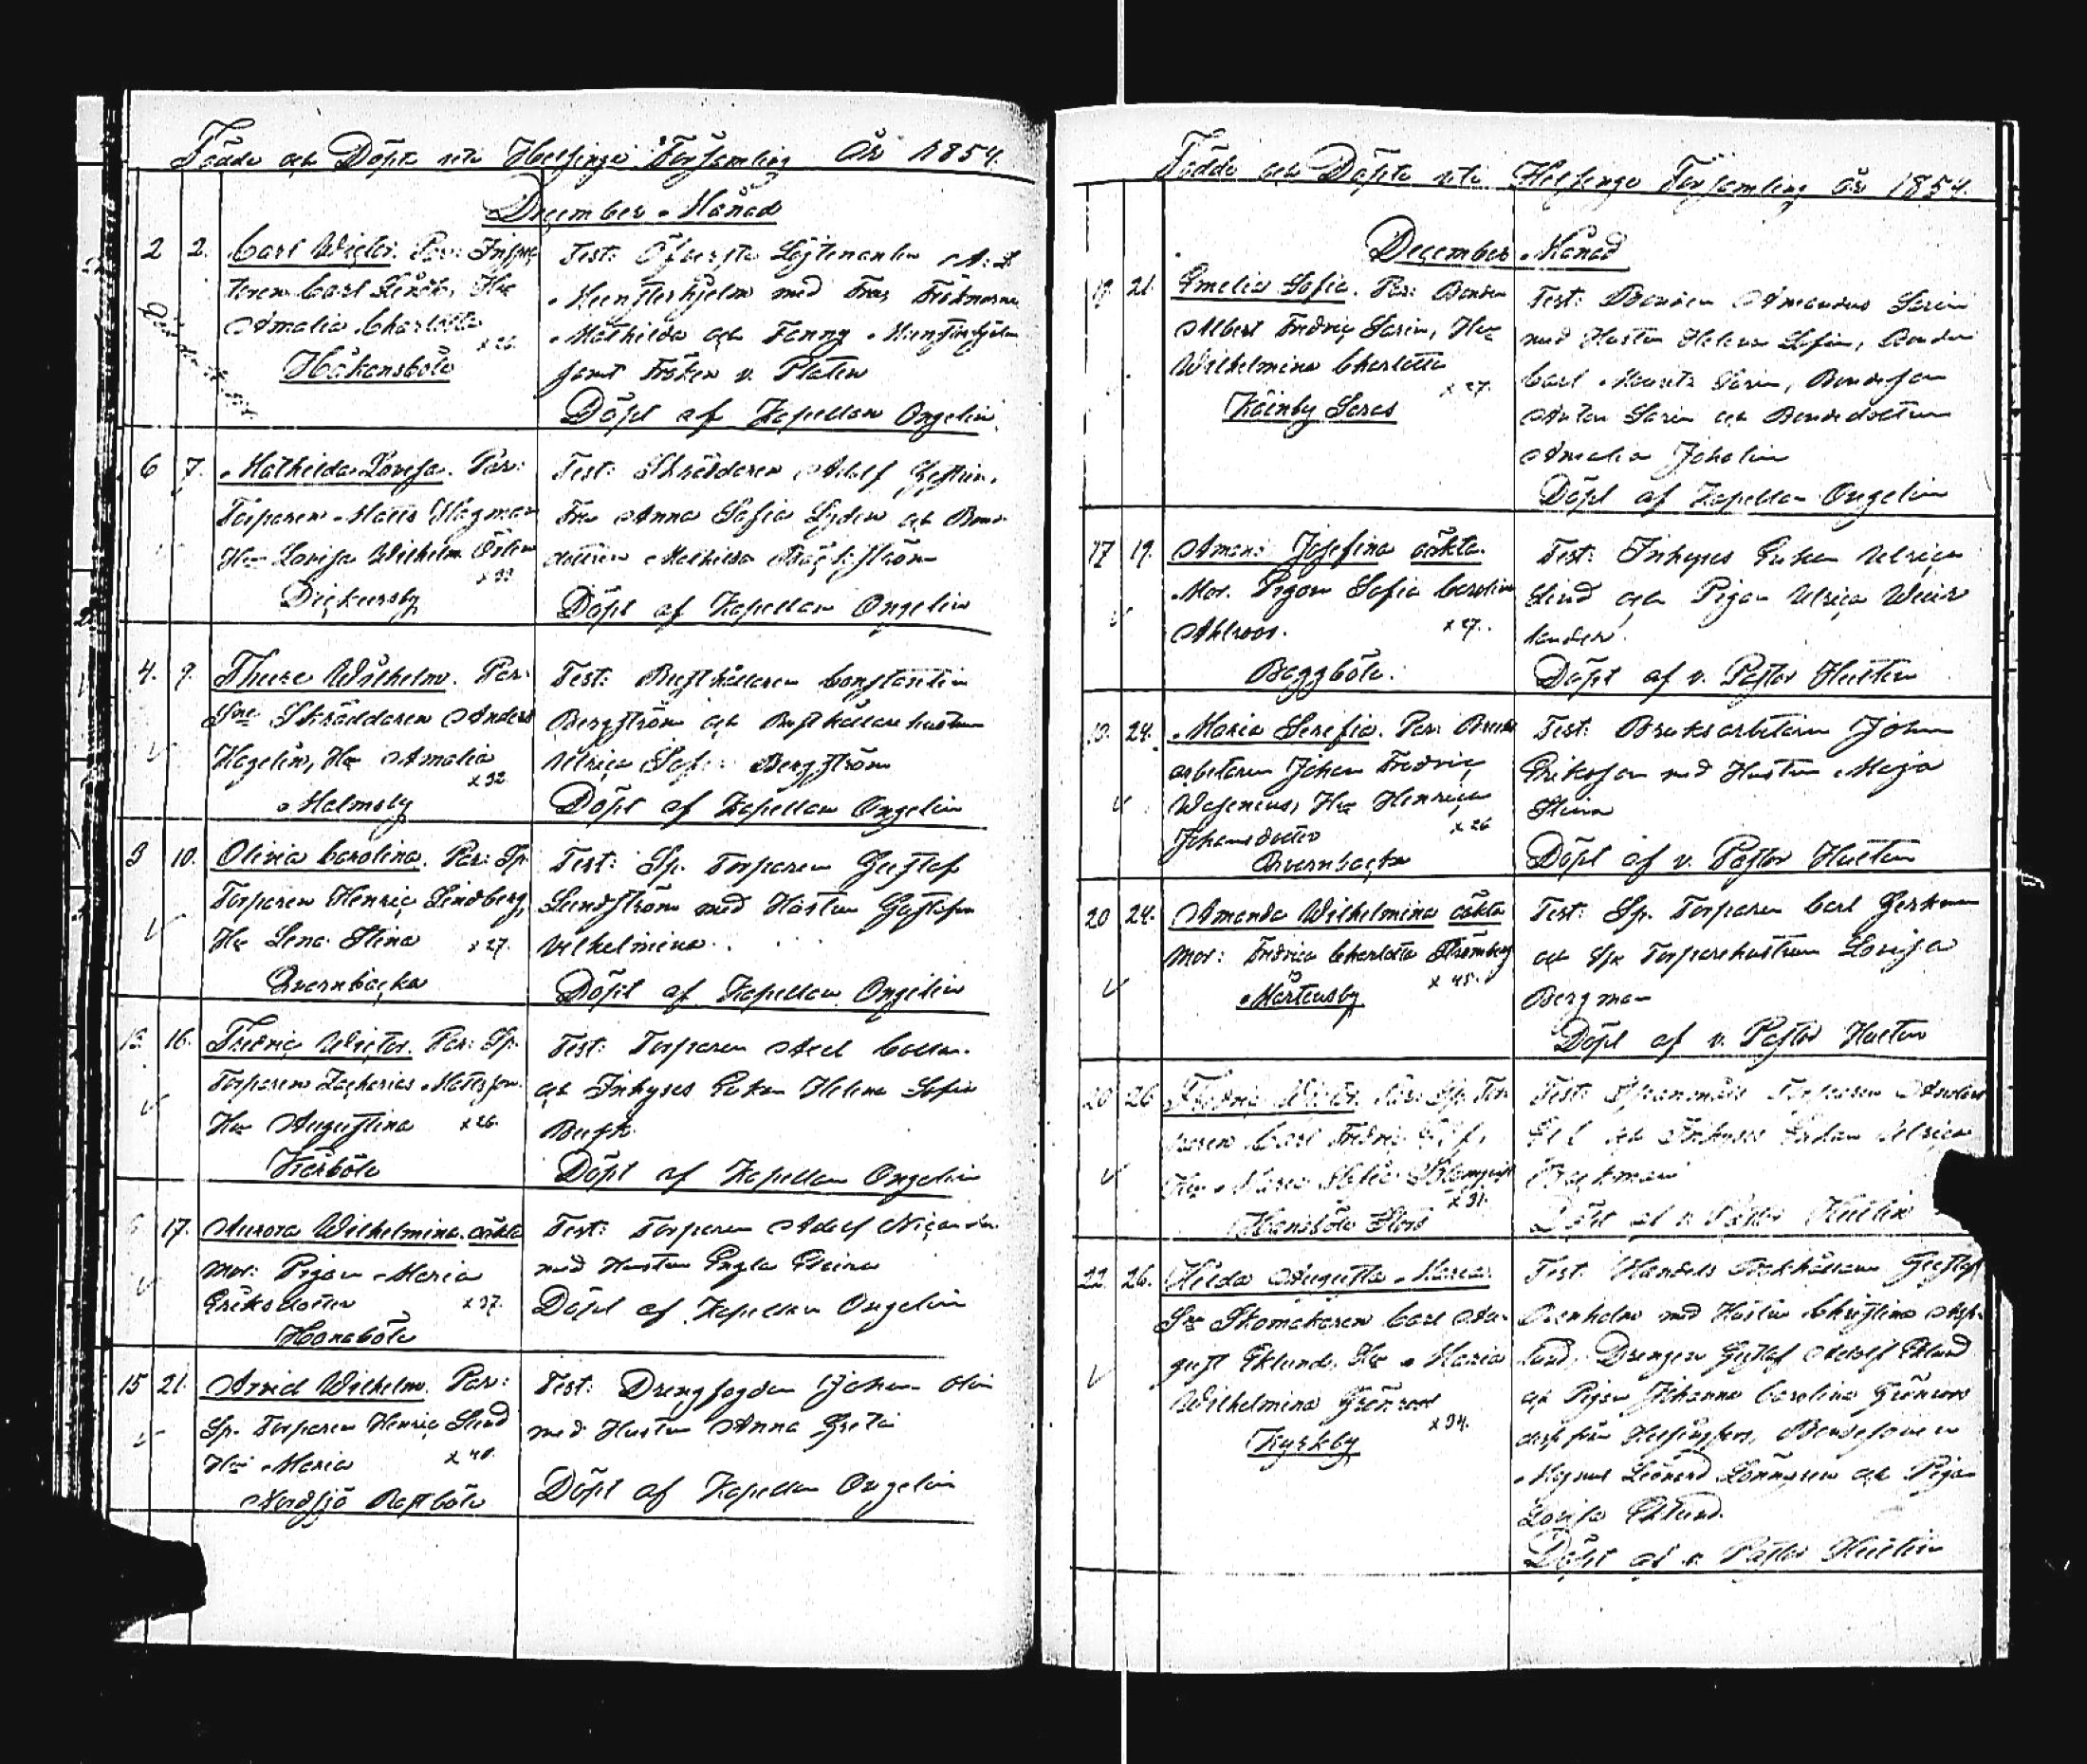 Födde och Döpte uti Helsinge Församling År 1854.
December Månad
2 2. Carl Wictor. Par: Inspec
toren Carl Hu
Amalia Charlotta x 26.
Håkansböle
Test: Öfverste Löjtenanten A: L
Munsterhjelm med Fru, Fröknarna
Mathilda och Fanny Munsterhjelm
samt Fröken v. Platen
Döpt af Kapellan Ongelin
6 7. Mathilda Lovisa. Par:
Torparen Matts Wagman
Hu Lovisa Wilhelm. Österm x 33
Dickursby
Test: Skräddaren Adolf
Fru Anna Sofia Lydén och Bond
dottren Mathilda Bäckström
Döpt af Kapellan Ongelin
4. 9. Thure Wilhelm. Par:
Sne Skräddaren Anders
Hagelin, Hu Amalia x 32
Malmsby
Test: Rusthållaren Constantin
Bergström och Rusthållare hustrun
Ulrica Sofi Bergström
Döpt af Kapellan Ongelin
3 10. Olivia Carolina. Par: Sp.
Torparen Henric Lindberg,
Hu Lena Stina x 27.
Qvarnbacka
Test: Sp. Torparen Gustaf
Lundström med Hustru Gustafva
Vilhelmina.
Döpt af Kapellan Ongelin
13. 16. Fredric Wictor. Par: Sp.
Torparen Zacharias Mattsson.
Hu Augustina x 26.
Kårböle
Test: Torparen Axel
och Inhyses Enkan Helena Sofia
Bergh
Döpt af Kapellan Ongelin
17. Aurora Wilhelmina. oäkta
Mor: Pigan Maria
Eriksdotter x 37.
Hanaböle
Test: Torparen Adolf Nicander
med Hustru Engla
Döpt af Kapellan Ongelin
15 21. Arvid Wilhelm. Par:
Sp. Torparen Henric Lund
Hu Maria x 40.
Nordsjö Rastböle
Test: Drengfogden Johan Olin
med Hustru Anna Greta
Döpt af Kapellan Ongelin
Födde och Döpte uti Helsinge Församling År 1854.
December Månad
19. 21. Emelia Sofia. Par: Bonden
Albert Fredric Sarin, Hu
Wilhelmina Charlotta x 27.
Käinby Saras
Test: Bonden Amandus Sarin
med Hustru Helena Sofia, Bonden
Carl Mauritz Sarin, Bondeson
Anton Sarin och Bondedottren
Amalia Jaholin
Döpt af Kapellan Ongelin
17 19. Amand Josefina oäkta.
Mor. Pigan Sofia Carolina
Ahlroos. x 27.
Baggböle.
Test: Inhyses Enkan Ulrica
Lind och Pigan Ulrica
lander.
Döpt af v. Pastor Hultin
10. 24. Maria Serefia. Par: Bruks
arbetaren Johan Fredric
Wasenius, Hu Henrica
Johansdotter x 26
Qvarnbacka
Test: Bruksarbetaren Johan
Eriksson med Hustru Maja
Stina
Döpt af v. Pastor Hultin
20 24. Amanda Wilhelmina oäkta
Mor: Fredrica Charlotta Strömberg
x 45.
Mårtensby
Test: Sp. Torparen Carl
och Sp. Torparehustrun Lovisa
Bergman
Döpt af v. Pastor Hultin
20 26 Fredric Wictor. Par: Sp. Tor
paren Carl Fredric
Hu Maria Sofia Blomqvist
x 31.
Hanaböle
Test: Spanmåls Torparen Anders
och Inhyses Enkan Ulrica
Backman
Döpt af v. Pastor Hultin
22. 26. Hilda Augusta Maria.
Sne Skomakaren Carl Au-
gust Eklund, Hu Maria
Wilhelmina Grönroos
x 34.
Kyrkby
Test: Handels Bokhållaren Gustaf
med Hustru Christina Asp-
lund, Drengen Gustaf Adolf Eklund
och Pigan Johanna Carolina Grönroos
från Helsingfors, Bondesonen
Magnus Leonard Lönngren och Pigan
Lovisa Eklund.
Döpt af v. Pastor Hultin